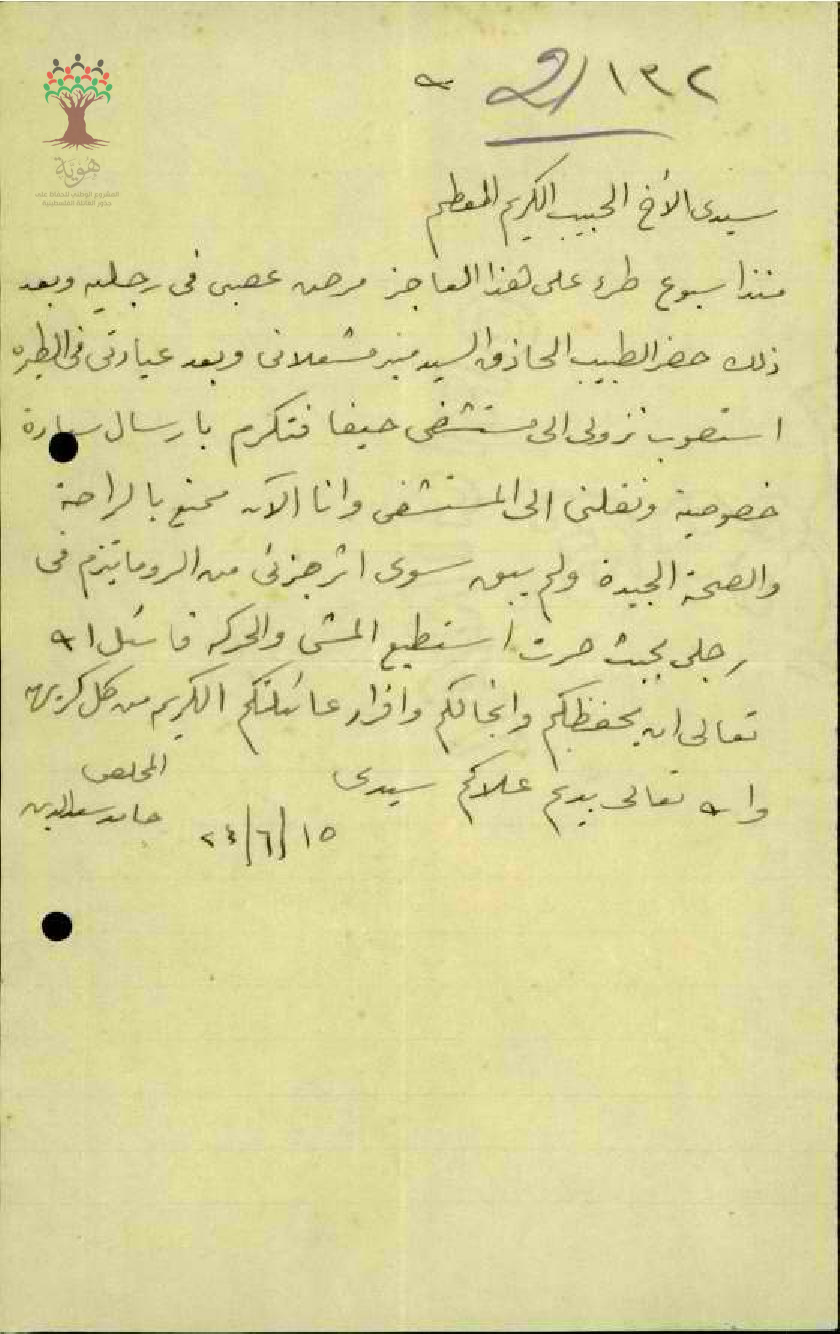 هوية
المشروع الوطني للحفاظ على
جذور العائلة الفلسطينية
١٣٢/
سيدى الأخ الحبيب الكريم المعظم
منذ اسبوع طرء على هذا العاجز مرض عصبى فى رجليه وبعد
ذلك حضر الطبيب الحاذق السيد منير مشعلانى وبعد عيادتى فى الطيره
استصوب نزولى الى مستشفى حيفا فتكرم بارسال سيارة
خصوصية ونقلنى الى المستشفى وانا الآن ممتع بالراحة
والصحة الجيدة ولم يبق سوى اثر جزئى من الروماتيزم فى
رجلى بحيث صرت استطيع المشى والحركه فاسئل الله
تعالى ان يحفظكم وانجالكم وافراد عائلتكم الكريمه من كل كريهه
والله تعالى يديم علاكم سيدى
المخلص
حامد سعد الدين
١٥/٦/٢٤